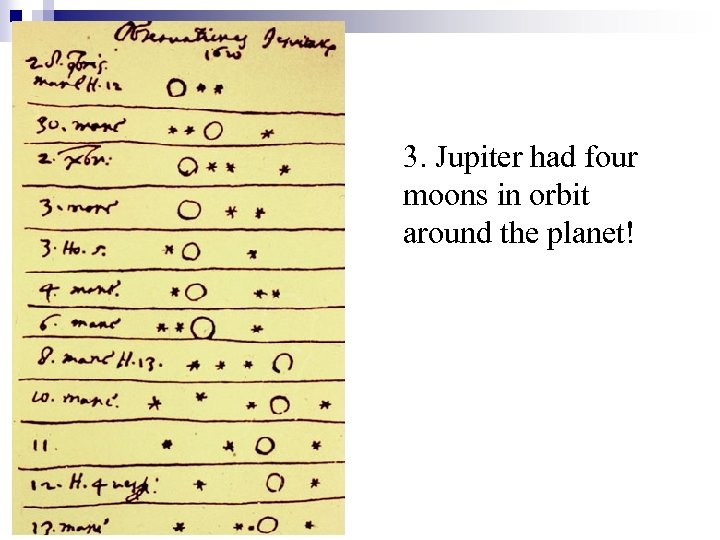 1610
30. mane
2.
3. mane
3. Ho. 5.
4. mane.
6. mane
8. mane H. 13.
10. mane.
11
12. H. 4
13. mane
3. Jupiter had four
moons in orbit
around the planet!